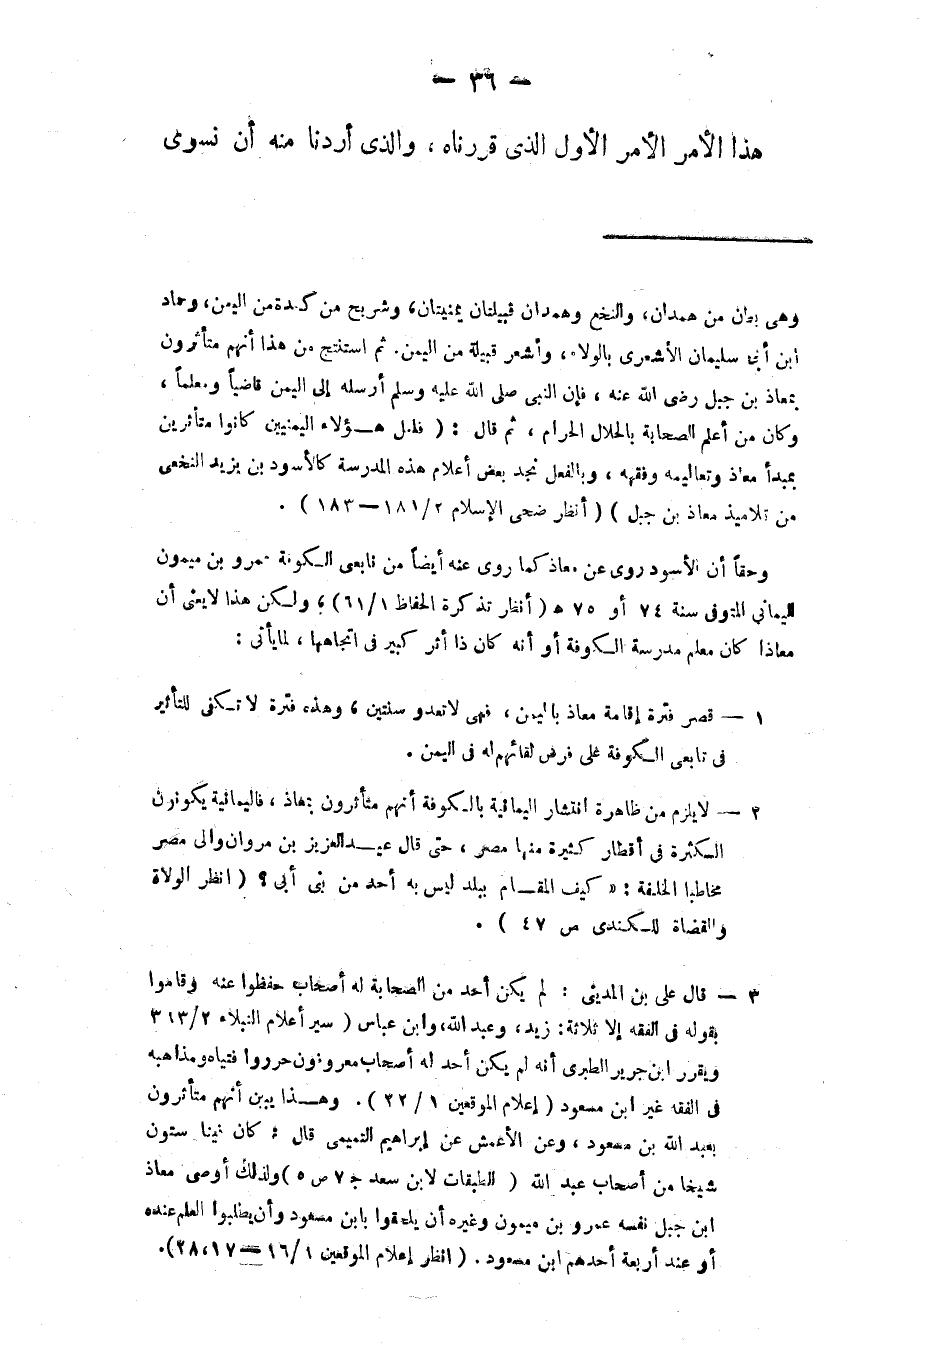 — ٣٦ —
هذا الأمر الأمر الأول الذى قررناه ، والذى أردنا منه أن نسوى
وهى بطن من همدان، والنخع وهمدان قبيلتان يمنيتان، وشريح من كندة من اليمن، وحماد
ابن أبى سليمان الأشعرى بالولاء، وأشعر قبيلة من اليمن. ثم استنتج من هذا أنهم متأثرون
بمعاذ بن جبل رضى الله عنه ، فإن النبى صلى الله عليه وسلم أرسله إلى اليمن قاضياً ومعلماً ،
وكان من أعلم الصحابة بالحلال الحرام ، ثم قال : ( فلعل هـؤلاء اليمنيين كانوا متأثرين
بمبدأ معاذ وتعاليمه وفقهه ، وبالفعل نجد بعض أعلام هذه المدرسة كالأسود بن يزيد النخعى
من تلاميذ معاذ بن جبل ) ( أنظر ضحى الإسلام ١٨١/٢ — ١٨٣ ) .
وحقاً أن الأسود روى عن معاذ كما روى عنه أيضاً من تابعى الـكوفة عمرو بن ميمون
اليمانى المتوفى سنة ٧٤ أو ٧٥ ه ( أنظر تذكرة الحفاظ ٦١/١ ) ؛ ولـكن هذا لايعنى أن
معاذا كان معلم مدرسة الـكوفة أو أنه كان ذا أثر كبير فى اتجاهها ، لمايأتى :
١ — قصر فترة إقامة معاذ باليمن ، فهى لاتعدو سنتين ، وهذه فترة لا تـكفى للتأثير
فى تابعى الـكوفة على فرض لقائهم له فى اليمن .
٢ — لايلزم من ظاهرة انتشار اليمانية بالـكوفة أنهم متأثرون بمعاذ ، فاليمانية يكونون
الـكثرة فى أقطار كثيرة منها مصر ، حتى قال عبـدالعزيز بن مروان والى مصر
مخاطبا الخليفة : « كيف المقـام ببلد ليس به أحد من بنى أبى ؟ ( انظر الولاة
والقضاة للـكندى ص ٤٧ ) .
٣ — قال على بن المدينى : لم يكن أحد من الصحابة له أصحاب حفظوا عنه وقاموا
بقوله فى الفقه إلا ثلاثة: زيد، وعبد الله، وابن عباس ( سير أعلام النبلاء ٣١٣/٢
ويقرر ابن جرير الطبرى أنه لم يكن أحد له أصحاب معروفون حرروا فتياه ومذاهبه
فى الفقه غير ابن مسعود ( إعلام الموقعين ١ / ٢٢ ) . وهـذا يبين أنهم متأثرون
بعبد الله بن مسعود ، وعن الأعمش عن إبراهيم التميمى قال : كان فينا ستون
شيخا من أصحاب عبد الله ( الطبقات لابن سعد ج ٧ ص ٥ ) ولذلك أوصى معاذ
ابن جبل نفسه عمرو بن ميمون وغيره أن يلحقوا بابن مسعود وأن يطلبوا العلم عنده
أو عند أربعة أحدهم ابن مسعود . ( انظر إعلام الموقعين ١٦/١ — ١٧، ٢٨ ).